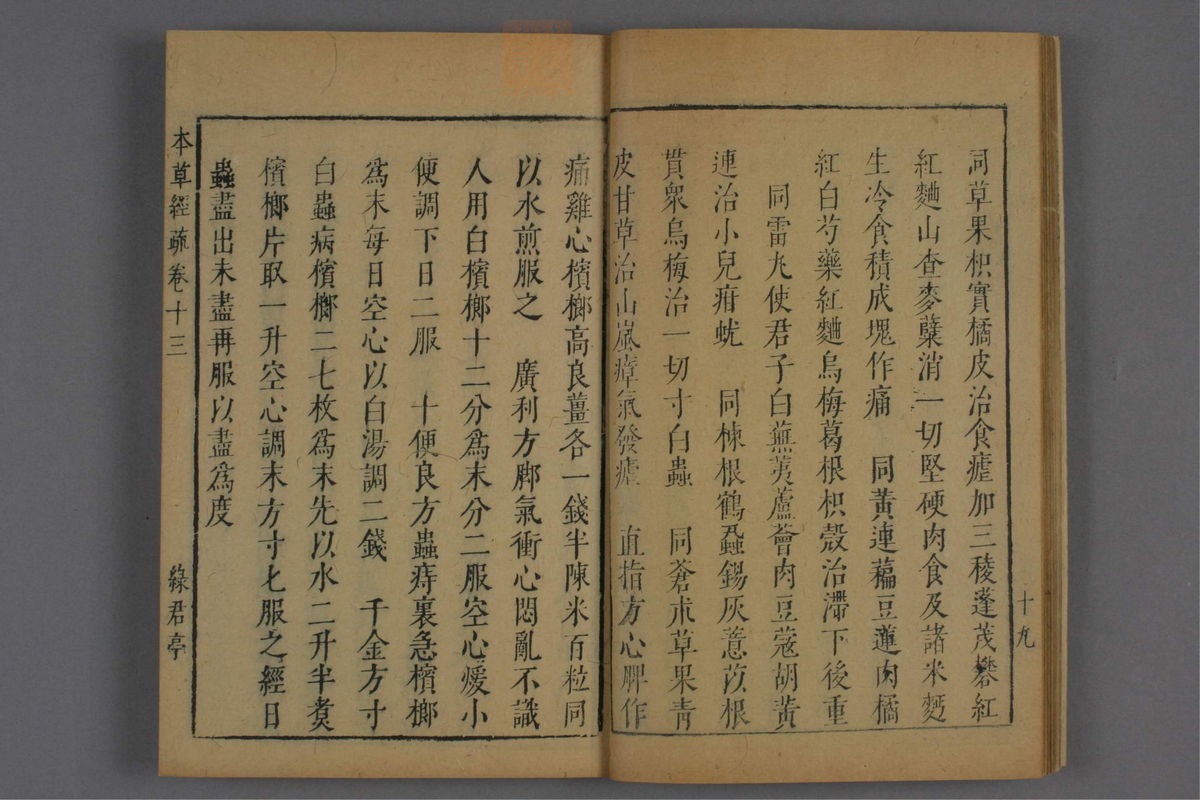 十九
同草果枳實橘皮治食瘧加三稜蓬茂礬紅
紅麯山查麥蘖消一切堅硬肉食及諸米麪
生冷食積成塊作痛　同黃連藊豆蓮肉橘
紅白芍藥紅麯烏梅葛根枳殼治滯下後重
同雷丸使君子白蕪荑蘆薈肉豆蔻胡黃
連治小兒疳蚘　同楝根鶴蝨錫灰薏苡根
貫衆烏梅治一切寸白蟲　同蒼朮草果青
皮甘草治山嵐瘴氣發瘧　直指方心脾作
痛雞心檳榔高良薑各一錢半陳米百粒同
以水煎服之　廣利方脚氣衝心悶亂不識
人用白檳榔十二分爲末分二服空心煖小
便調下日二服　十便良方蟲痔裏急檳榔
爲末每日空心以白湯調二錢　千金方寸
白蟲病檳榔二七枚爲末先以水二升半煑
檳榔片取一升空心調末方寸匕服之經日
蟲盡出未盡再服以盡爲度
本草經疏卷十三
綠君亭